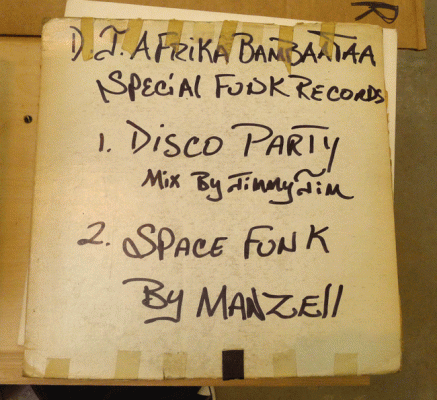 D.J. AFRIKA BAMBAATAA
SPECIAL FUNK RECORDS
1. DISCO PARTY
MIX BY JIMMY JIM
2. SPACE FUNK
BY MANZELL
R